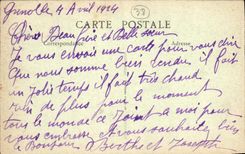 Grenoble 4 Avril 1924
CARTE POSTALE
38
Correspondance
Chères Beau frère et Belle Soeur
Je vous envois une carte pour vous dire
Que nous somme bien rendu il fait
un jolie temps il fait très chaud
rien de plus pour le moment
tous le monde ce joint a moi pour
vous embrasse et vous souhaite bien
le Bonjour Berthe et Joseph